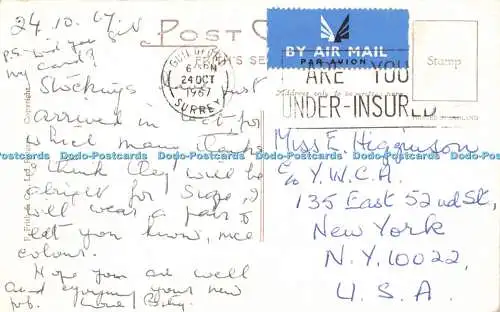 24.10.67.
P.S. Did you
my card?
POST
Stockings just
arrived in
which many thanks
think they will be
alright for size, I
will wear a pair &
let you know, nice
colour.
Hope you are well
and enjoying your new
job. Love
BY AIR MAIL
PAR AVION
GUILDFORD
6 PM
24 OCT
1967
SURREY
ARE YOU
UNDER-INSURED
Address only to be written here
Stamp
Miss E. Higginson
c/o Y.W.C.A.
135 East 52nd St,
New York
N.Y. 10022,
U.S.A.
Dodo-Postcards Dodo-Postcards Dodo-Postcards Dodo-Postcards Dodo-Postcards Dodo-Postcards